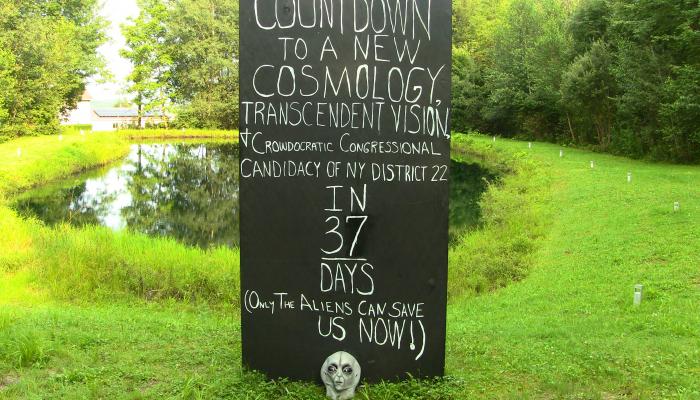 COUNTDOWN
TO A NEW
COSMOLOGY,
TRANSCENDENT VISION,
+ CROWDOCRATIC CONGRESSIONAL
CANDIDACY OF NY DISTRICT 22
IN
37
DAYS
(ONLY THE ALIENS CAN SAVE
US NOW!)